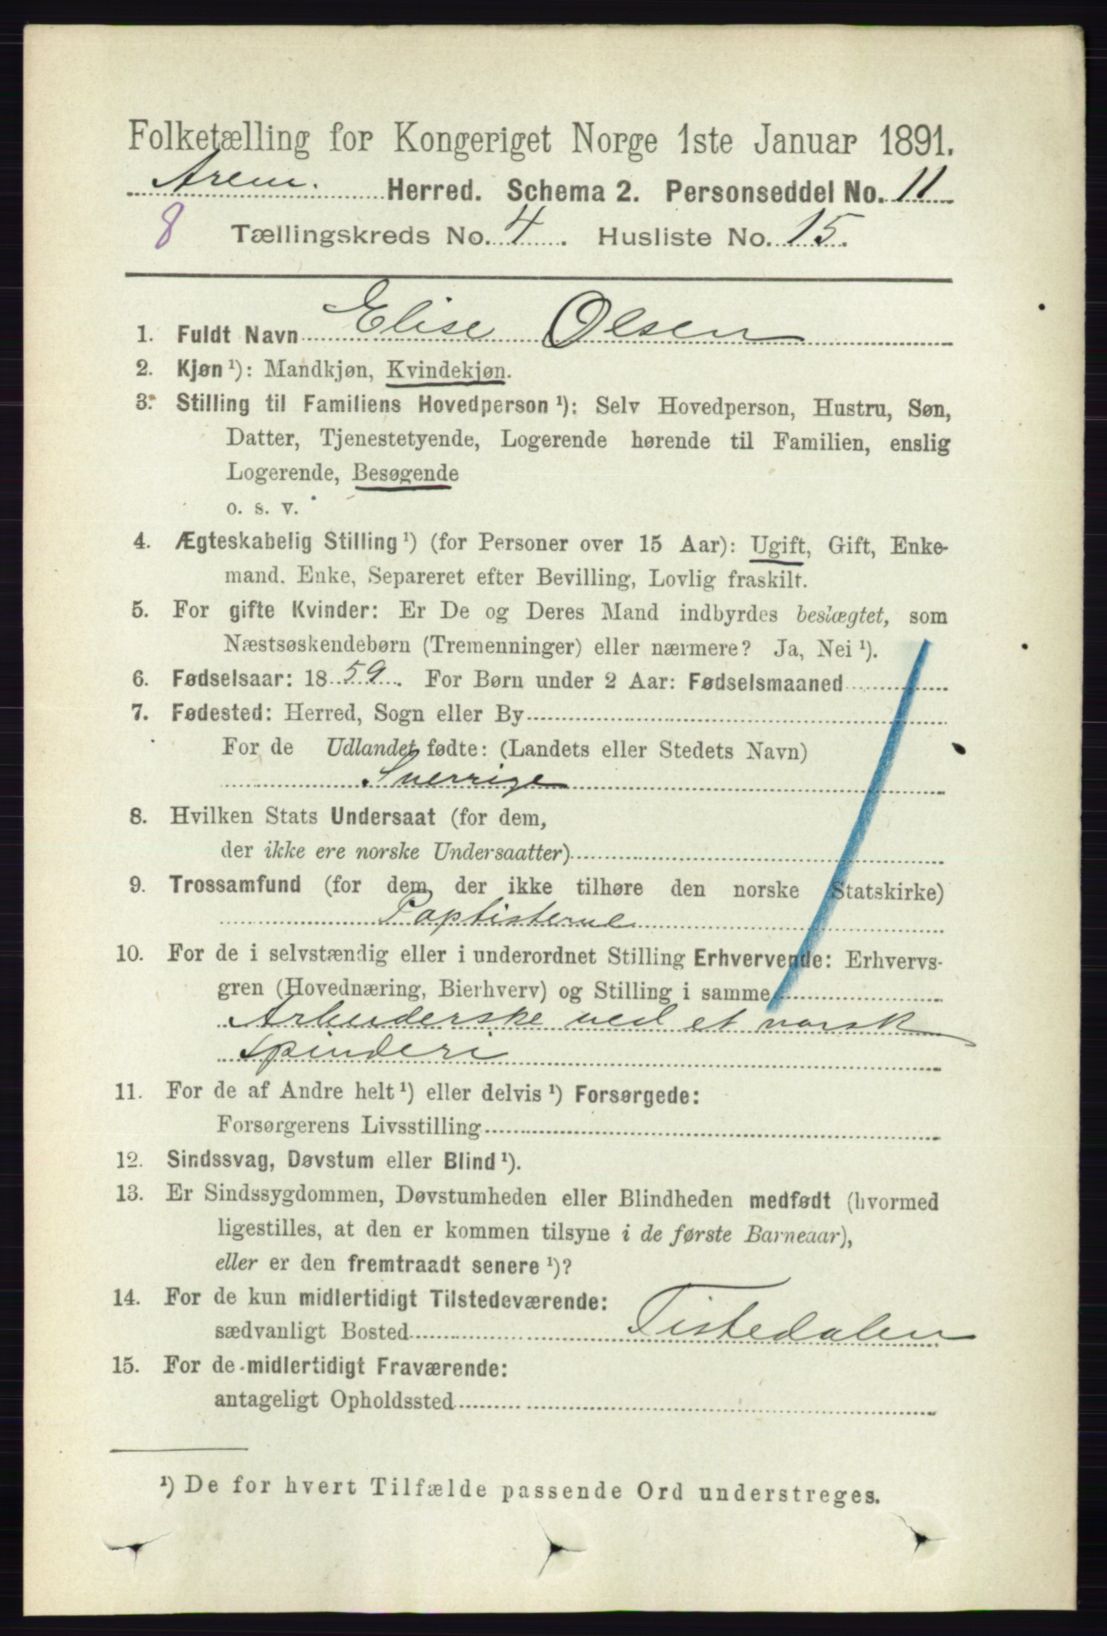 Folketælling for Kongeriget Norge 1ste Januar 1891.
Arem. Herred. Schema 2. Personseddel No. 11
8 Tællingskreds No. 4. Husliste No. 15.
1. Fuldt Navn Elise Olsen
2. Kjøn ¹): Mandkjøn, Kvindekjøn.
3. Stilling til Familiens Hovedperson ¹): Selv Hovedperson, Hustru, Søn,
Datter, Tjenestetyende, Logerende hørende til Familien, enslig
Logerende, Besøgende
o. s. v.
4. Ægteskabelig Stilling ¹) (for Personer over 15 Aar): Ugift, Gift, Enke-
mand. Enke, Separeret efter Bevilling, Lovlig fraskilt.
5. For gifte Kvinder: Er De og Deres Mand indbyrdes beslægtet, som
Næstsøskendebørn (Tremenninger) eller nærmere? Ja, Nei ¹).
6. Fødselsaar: 1859. For Børn under 2 Aar: Fødselsmaaned
7. Fødested: Herred, Sogn eller By
For de Udlandet fødte: (Landets eller Stedets Navn)
Sverrige
8. Hvilken Stats Undersaat (for dem,
der ikke ere norske Undersaatter)
9. Trossamfund (for dem, der ikke tilhøre den norske Statskirke)
Paptisterne
10. For de i selvstændig eller i underordnet Stilling Erhvervende: Erhvervs-
gren (Hovednæring, Bierhverv) og Stilling i samme
Arbeiderske ved et norsk
spinderi
11. For de af Andre helt ¹) eller delvis ¹) Forsørgede:
Forsørgerens Livsstilling
12. Sindssvag, Døvstum eller Blind ¹).
13. Er Sindssygdommen, Døvstumheden eller Blindheden medfødt (hvormed
ligestilles, at den er kommen tilsyne i de første Barneaar),
eller er den fremtraadt senere ¹)?
14. For de kun midlertidigt Tilstedeværende:
sædvanligt Bosted Tistedalen
15. For de midlertidigt Fraværende:
antageligt Opholdssted
¹) De for hvert Tilfælde passende Ord understreges.